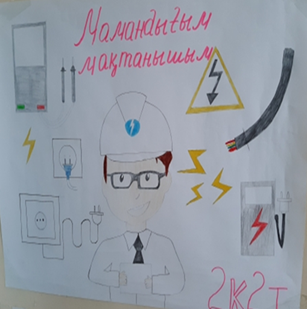 Мамандығым
мақтанышым
2К2т